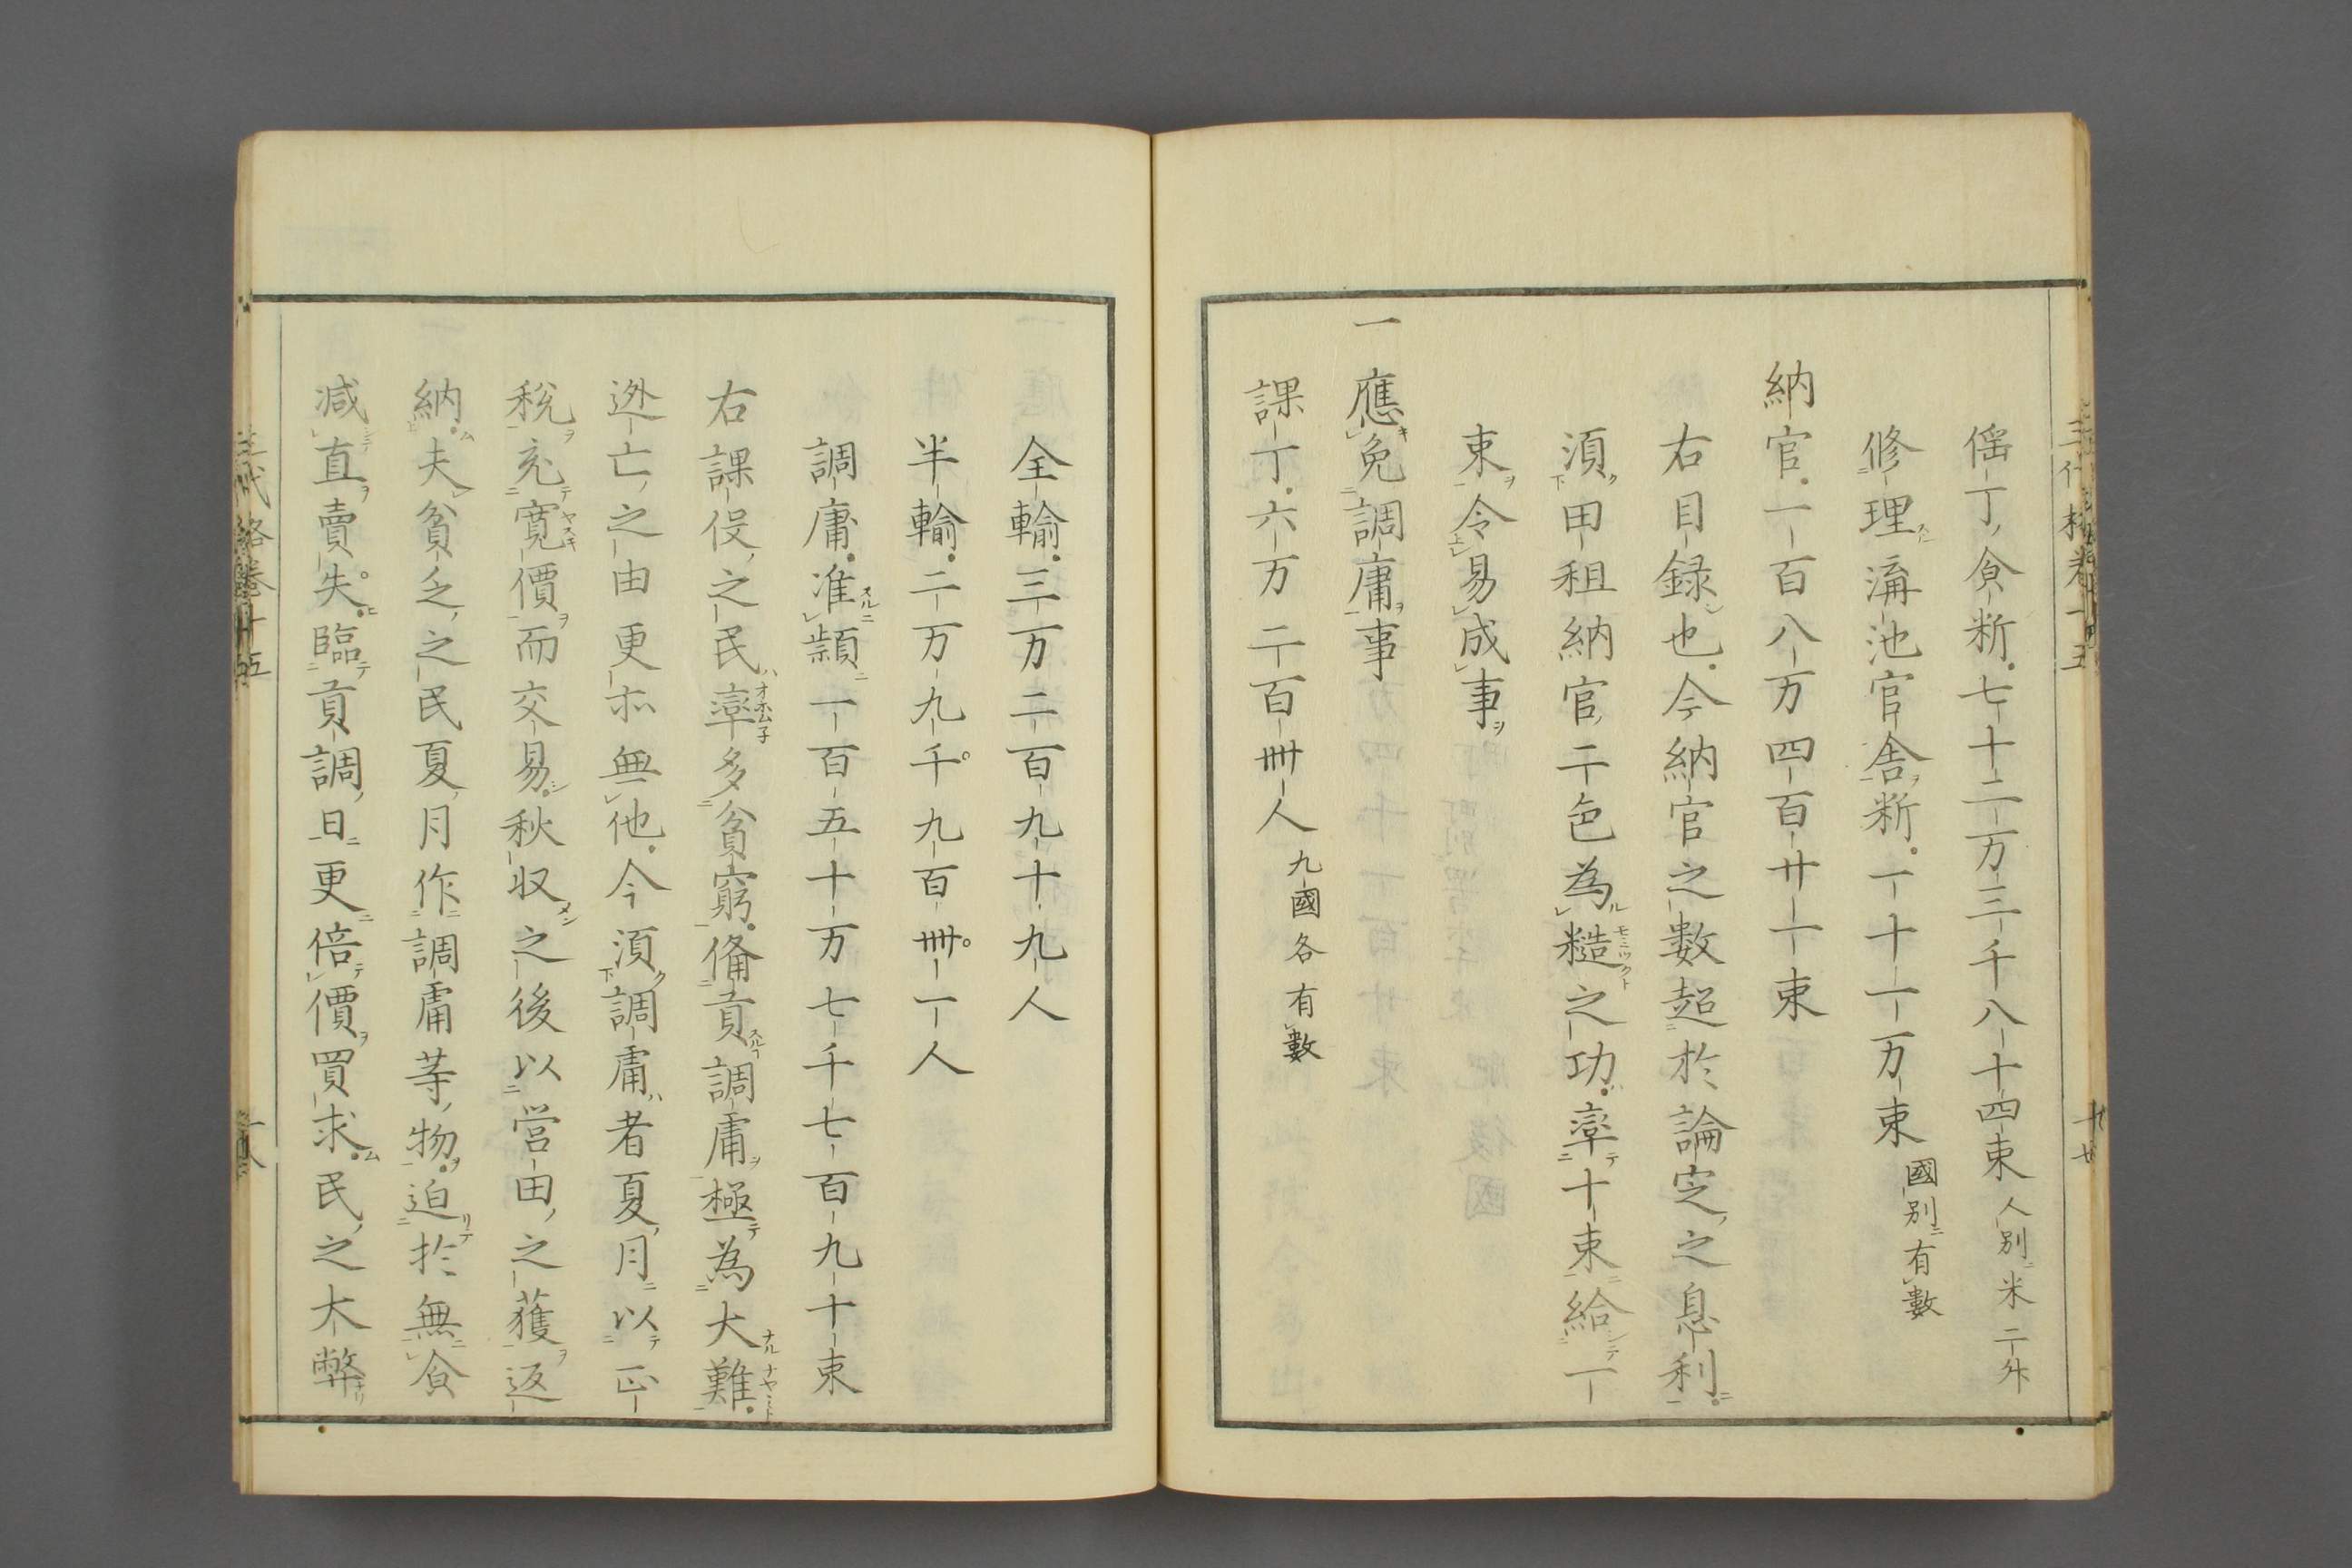 徭丁食料七十二万三千八十四束人別米二升
修理溝池官舎料一十一万束國別有數
納官一百八万四百廿一束
右目録也今納官之數超於論定之息利
須田租納官二色為糙之功率十束給一
束令易成事
一應免調庸事
課丁六万二百卌人九國各有數
全輸三万二百九十九人
半輸二万九千九百卌一人
調庸准頴一百五十万七千七百九十束
右課役之民率多貧窮俻貢調庸極為大難
迯亡之由更亦無他今須調庸者夏月以正
税充寛價而交易秋収之後以営田之獲返
納夫貧乏之民夏月作調庸等物迫於無食
減直賣失臨貢調日更倍價買求民之大弊